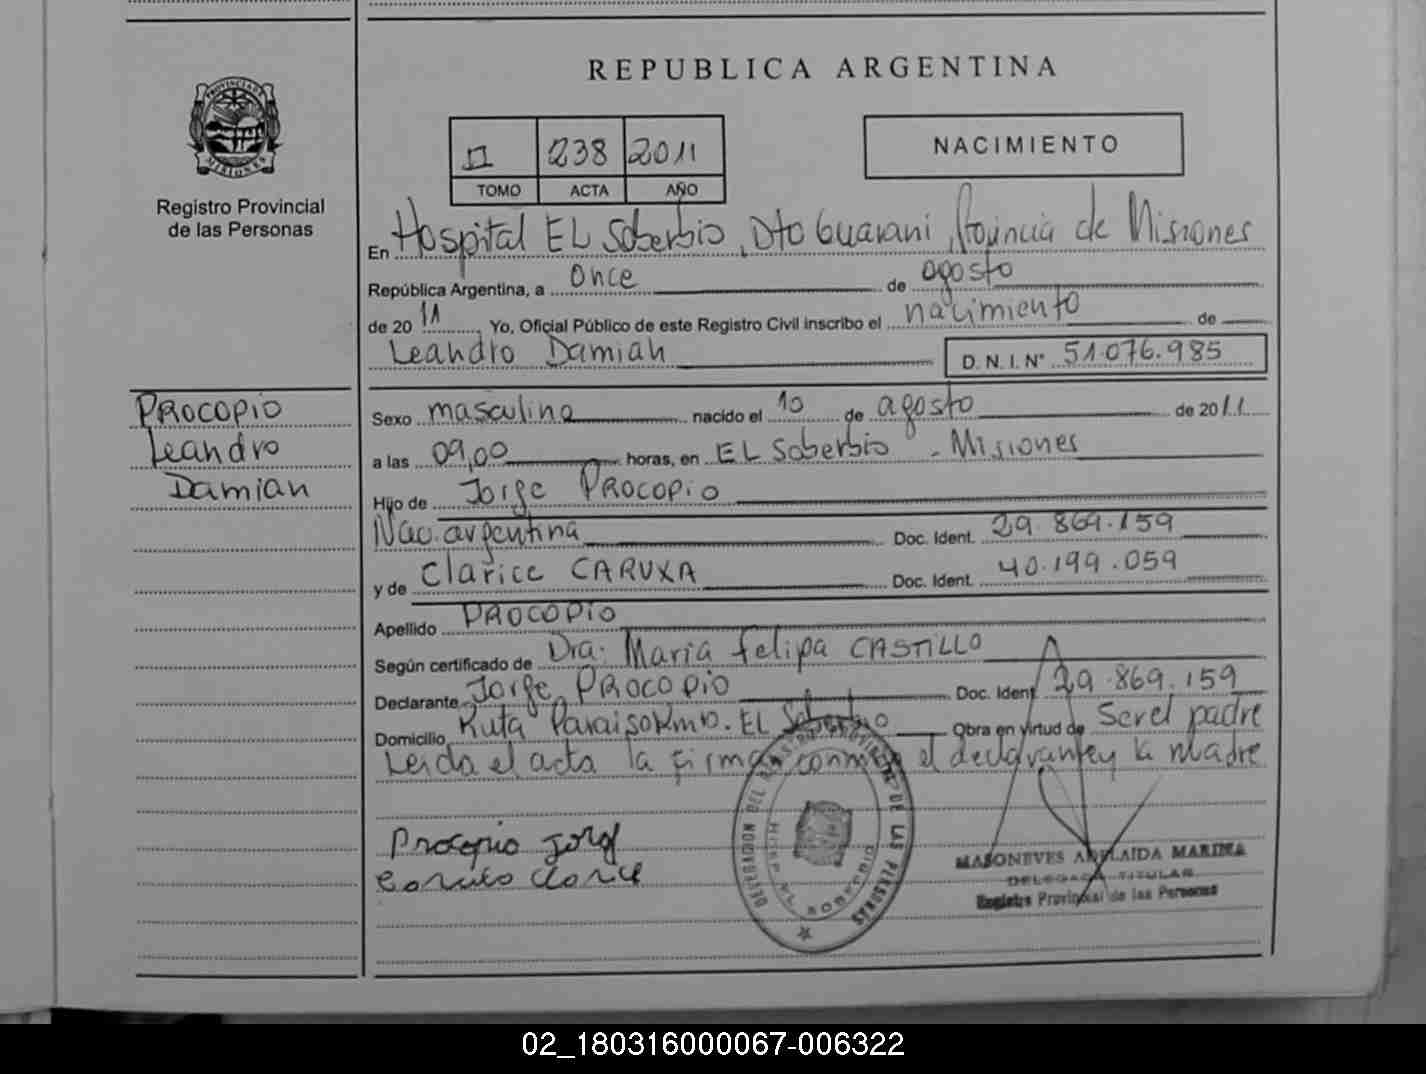 REPUBLICA ARGENTINA
PROVINCIA DE MISIONES
Registro Provincial
de las Personas
II 238 2011
TOMO ACTA AÑO
NACIMIENTO
En Hospital EL Soberbio, Dto Guarani, Provincia de Misiones
República Argentina, a once de agosto
de 2011, Yo, Oficial Público de este Registro Civil inscribo el nacimiento de
Leandro Damian D. N. I. Nº 51.076.985
PROCOPIO
Leandro
Damian
Sexo masculino nacido el 10 de agosto de 2011
a las 09,00 horas, en EL Soberbio - Misiones
Hijo de Jorge PROCOPIO
Nac. argentina Doc. Ident. 29.869.159
y de Clarice CARUXA Doc. Ident. 40.199.059
Apellido PROCOPIO
Según certificado de Dra. Maria Felipa CASTILLO
Declarante Jorge PROCOPIO Doc. Ident 29.869.159
Domicilio Ruta Paraiso Km 10. EL Soberbio Obra en virtud de Ser el padre
Leida el acta la firman conmigo el declarante y la madre
Procopio Jorg
DELEGACION DEL REG. PROVINCIAL DE LAS PERSONAS
EL SOBERBIO
MASONEVES ADELAIDA MARINA
DELEGADA TITULAR
Registro Provincial de las Personas
02_180316000067-006322